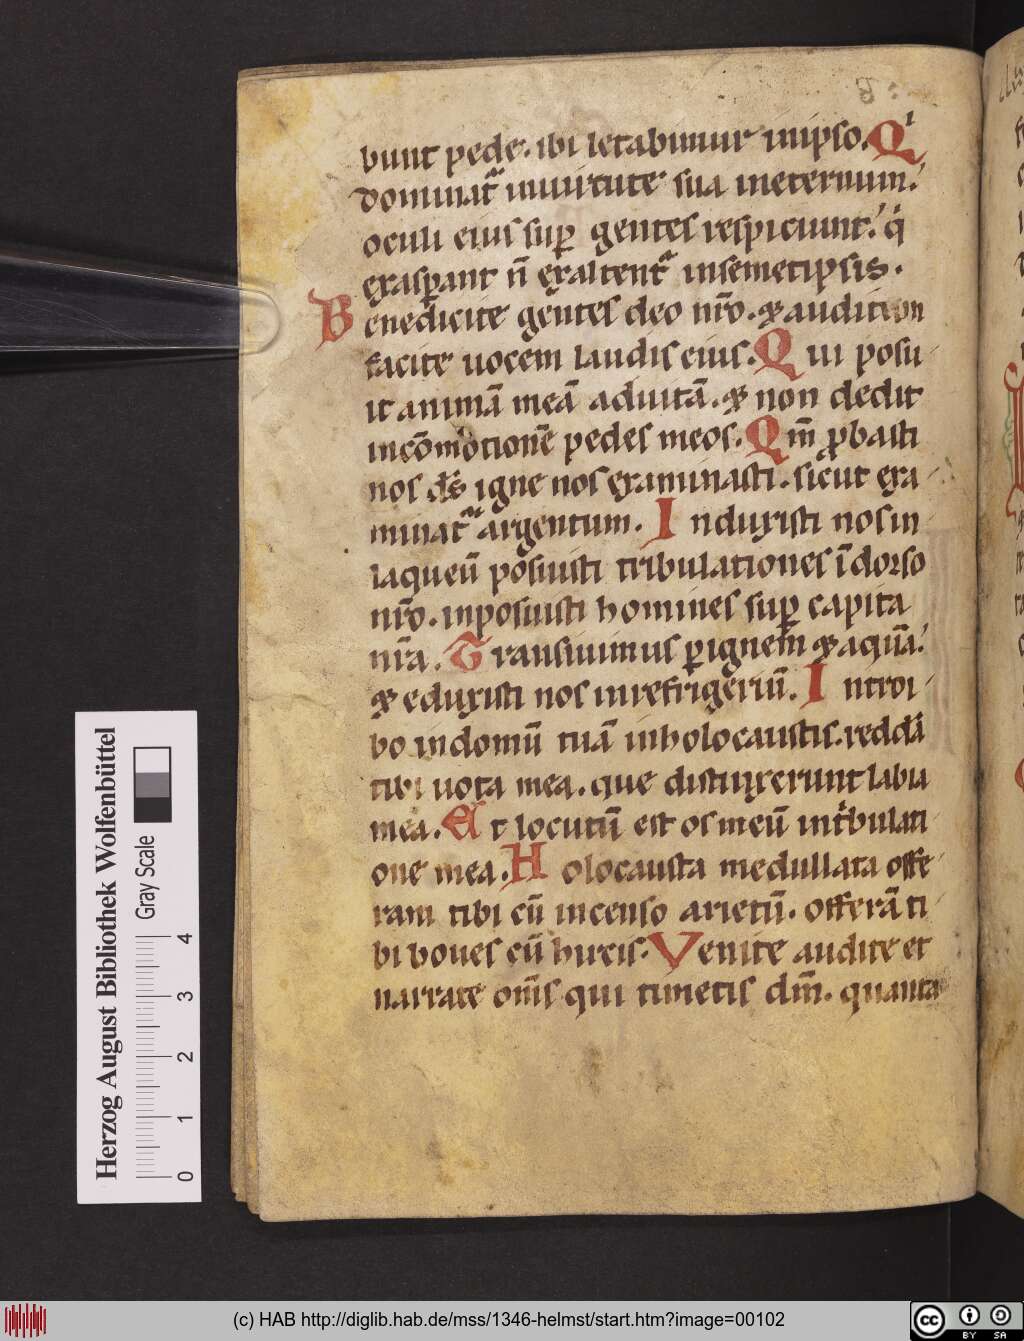 bunt pede. ibi letabimur in ipso. Qⁱ
dominat᷑ in uirtute sua in eternum.
oculi eius suꝑ gentes respiciunt. q̇
exasꝑant n̄ exaltent᷑ in semetipsis.
Benedicite gentes deo nr̄o. ⁊ auditam
facite uocem laudis eius. Qui posu
it animā meā ad uitā. ⁊ non dedit
in cōmotionē pedes meos. Qm̄ ꝓbasti
nos ds̄ igne nos examinasti. sicut exa
minat᷑ argentum. Induxisti nos in
laqueū posuisti tribulationes ī dorso
nr̄o. inposuisti homines suꝑ capita
nr̄a. Transiuimus ꝑ ignem ⁊ aquā.
⁊ eduxisti nos in refrigeriū. Introi
bo in domū tuā in holocaustis. reddā
tibi uota mea. que distinxerunt labia
mea. Et locutū est os meū in tⁱbulati
one mea. Holocausta medullata offe
ram tibi cū incenso arietū. offerā ti
bi boues cū hircis. Venite audite et
narrate oms̄ qui timetis dm̄. quanta
Herzog August Bibliothek Wolfenbüttel
Gray Scale
0 1 2 3 4
(c) HAB http://diglib.hab.de/mss/1346-helmst/start.htm?image=00102
cc BY SA